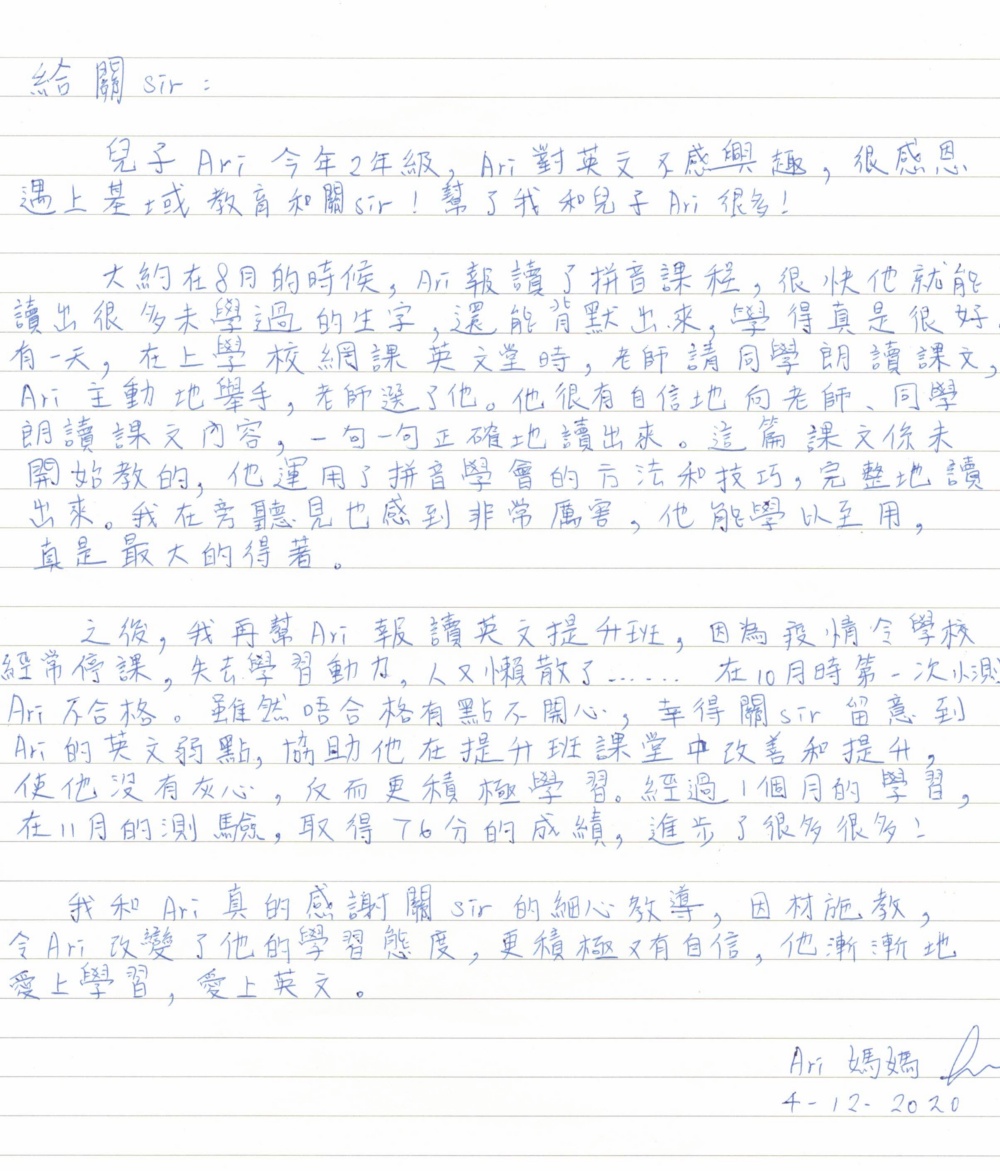 給關sir：
兒子Ari今年2年級，Ari對英文不感興趣，很感恩
遇上基域教育和關sir！幫了我和兒子Ari很多！
大約在8月的時候，Ari報讀了拼音課程，很快他就能
讀出很多未學過的生字，還能背默出來，學得真是很好。
有一天，在上學校網課英文堂時，老師請同學朗讀課文，
Ari主動地舉手，老師選了他。他很有自信地向老師、同學
朗讀課文內容，一句一句正確地讀出來。這篇課文係未
開始教的，他運用了拼音學會的方法和技巧，完整地讀
出來。我在旁聽見也感到非常厲害，他能學以至用，
真是最大的得著。
之後，我再幫Ari報讀英文提升班，因為疫情令學校
經常停課，失去學習動力，人又懶散了……在10月時第一次小測
Ari不合格。雖然唔合格有點不開心，幸得關sir留意到
Ari的英文弱點，協助他在提升班課堂中改善和提升，
使他沒有灰心，反而更積極學習。經過1個月的學習，
在11月的測驗，取得76分的成績，進步了很多很多！
我和Ari真的感謝關sir的細心教導，因材施教，
令Ari改變了他的學習態度，更積極又有自信，他漸漸地
愛上學習，愛上英文。
Ari媽媽
4-12-2020